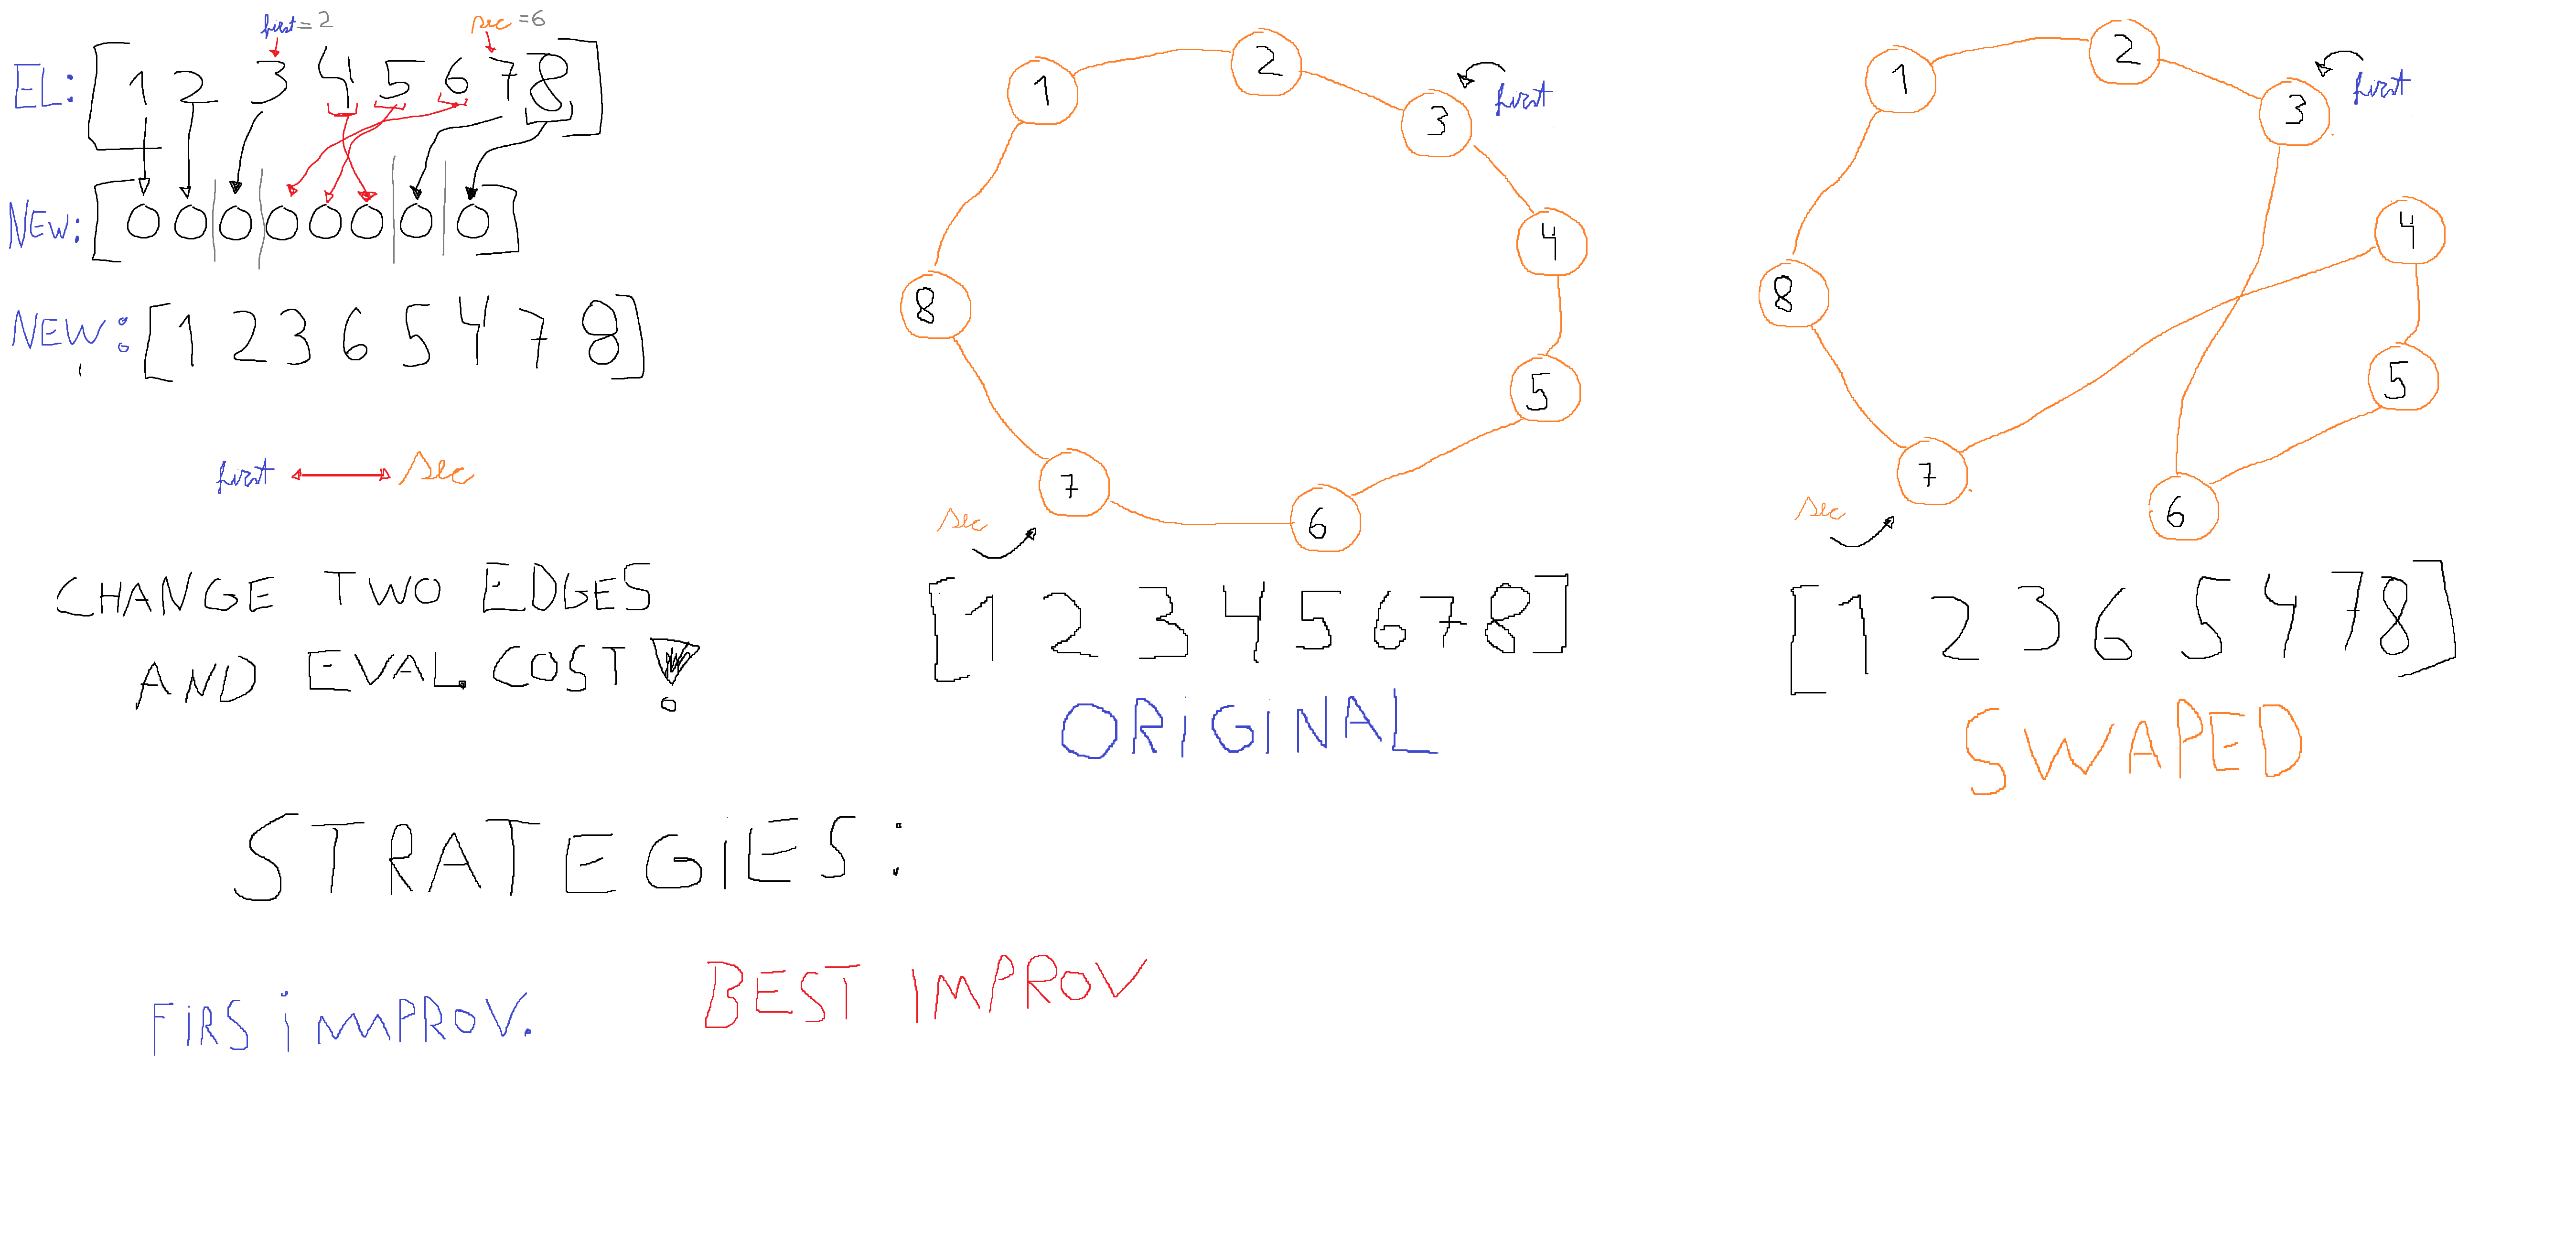 first = 2
sec = 6
EL: [1 2 3 4 5 6 7 8]
NEW: [O O O O O O O O]
NEW: [1 2 3 6 5 4 7 8]
first sec
CHANGE TWO EDGES
AND EVAL. COST !
1 2 3 4 5 6 7 8
first
sec
[1 2 3 4 5 6 7 8]
ORIGINAL
1 2 3 4 5 6 7 8
first
sec
[1 2 3 6 5 4 7 8]
SWAPED
STRATEGIES:
FIRS IMPROV.
BEST IMPROV